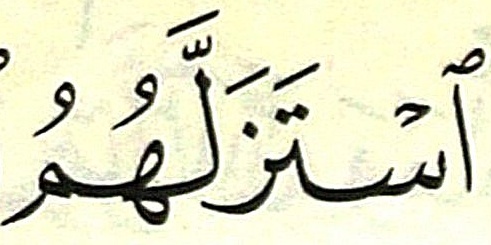 ٱسْتَزَلَّهُمُ